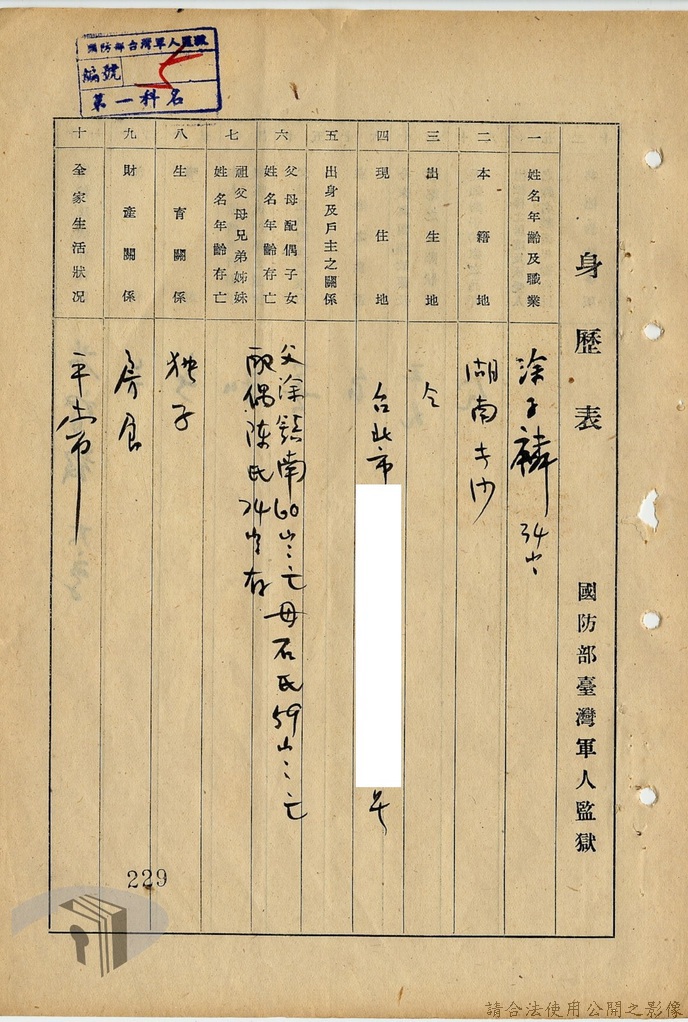 國防部台灣軍人監獄
編號
第一科名
身歷表
國防部臺灣軍人監獄
一 姓名年齡及職業
涂子麟 34
二 本籍地
湖南
三 出生地
仝
四 現住地
台北市 号
五 出身及戶主之關係
六 父母配偶子女姓名年齡存亡
父涂 南60 亡 母石氏59 亡
配偶陳氏24 存
七 祖父母兄弟姊妹姓名年齡存亡
八 生育關係
独子
九 財產關係
房
十 全家生活狀况
平常
229
請合法使用公開之影像